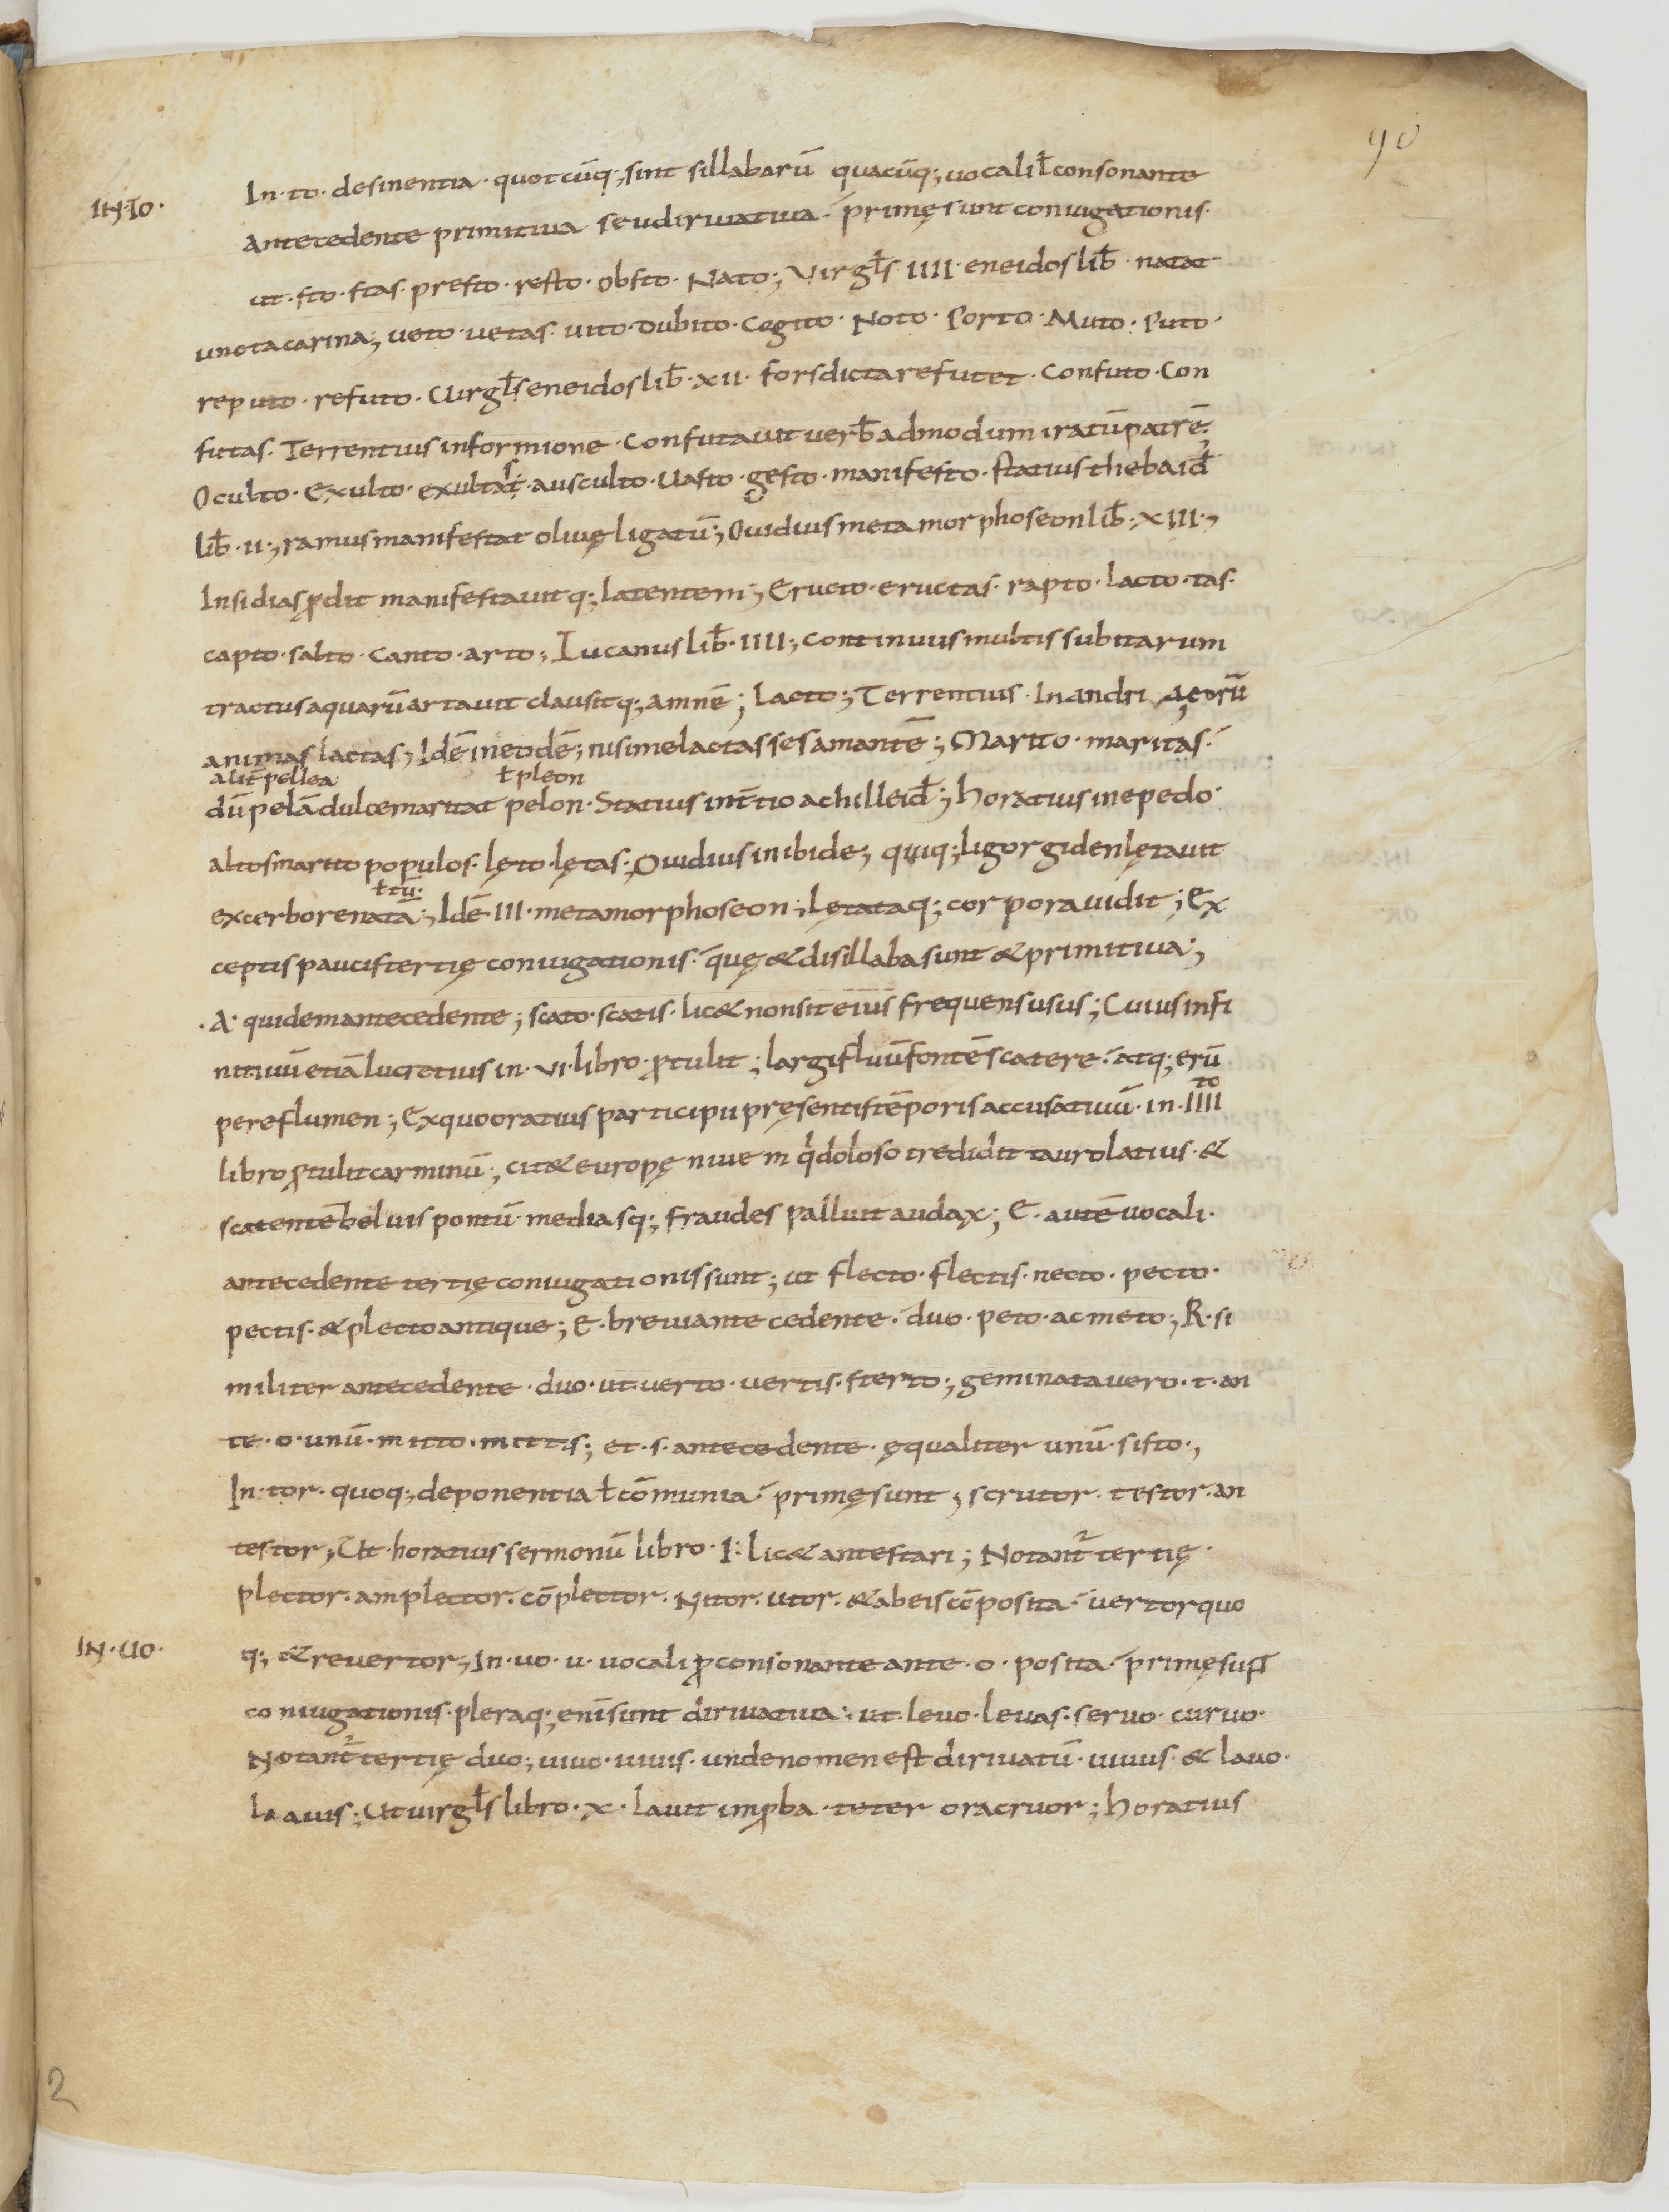 90
IN·TO·
In·to·desinentia·quotcūq;sint sillabarū quacūq;uocali ł consonante
antecedente primitiua seudiriuatiua·primę sunt coniugationis·
ut·sto·stas·presto·resto·obsto·Nato; Virgł̄s IIII·eneidos lib̄·natat
uncta carina; ueto·uetas·uito·dubito·Cogito·Noto·Porto·Muto·Puto·
reputo·refuto·Uirgł̄s eneidos lib̄·XII·fors dicta refutet·Confuto·Con
futas·Terrentius in formione·Confutauit uerb̄ admodum iratū patrē;
Oculto·Exulto·exultas·ausculto·Uasto·gesto·manifesto·statius thebaid̄
lib̄·II·; ramus manifestat oliuę ligatū; Ouidius metamorphoseon lib̄·XIII·;
Insidias ꝓdit manifestauitq; latentem; Eructo·eructas·rapto·lacto·tas·
capto·salto·canto·arto; Lucanus lib̄·IIII; continuus multis subitarum
tractus aquarū artauit clausitq; amnē; lacto; Terrentius·In andri a; eorū
animas lactas; Idē in eodē; nisi me lactasses amantē; Marito·maritas·
alīt pellea ł pleon
dū pelā dulce maritat pelon·Statius in t̄tio achilleid̄; horatius in epedo·
altos marito populos·lęto·lętas; Ouidius in ibide; quiq; ligorgiden lętauit
ł tū·
excerbore natā; Idē·III·metamorphoseon; lętataq; corpora uidit; Ex
ceptis paucis tertię coniugationis·quę & disillaba sunt & primitiua;
·A·quidem antecedente; scato·scatis·lic& non sit eius frequens usus; Cuius infi
nitiuū etiā lucretius in·VI·libro·ꝓtulit; largifluū fontē scatere·atq; erū
pere flumen; Ex quo oratius participii pręsentis tēporis accusatiuū·in·IIII to
libro ꝓtulit carminū; cit& europę niue m qd̄ doloso tredidit tauro latius·&
scatentē beluis pontū mediasq; fraudes palluit audax; E·autē uocali·
antecedente tertię coniugationis sunt; ut flecto·flectis·necto·pecto·
pectis·& plecto antique; E·breui antecedente·duo·peto·ac meto; R·si
militer antecedente·duo·ut·uerto·uertis·sterto; geminata uero·t·an
te·o·unū·mitto·mittis; et·s·antecedente·ęqualiter unū·sisto·;
In·tor·quoq; deponentia ł cōmunia·primę sunt; scrutor·testor·an
testor; Ut horatius sermonū libro·I·: lic& antestari; Notant᷑ tertię·
plector·amplector·cōplector·Nitor·utor·& ab eis cōposita·uertor quo
IN·UO·
q; & reuertor; In·uo·u·uocali ꝓ consonante ante·o·posita·primę sunt
coniugationis·pleraq; enī sunt diriuatiua·ut·leuo·leuas·seruo·curuo·
Notant᷑ tertię duo; uiuo·uiuis·unde nomen est diriuatū·uiuus·& lauo·
la auis; Ut uirgł̄s libro·X·lauit imꝓba·teter ora cruor; horatius
2